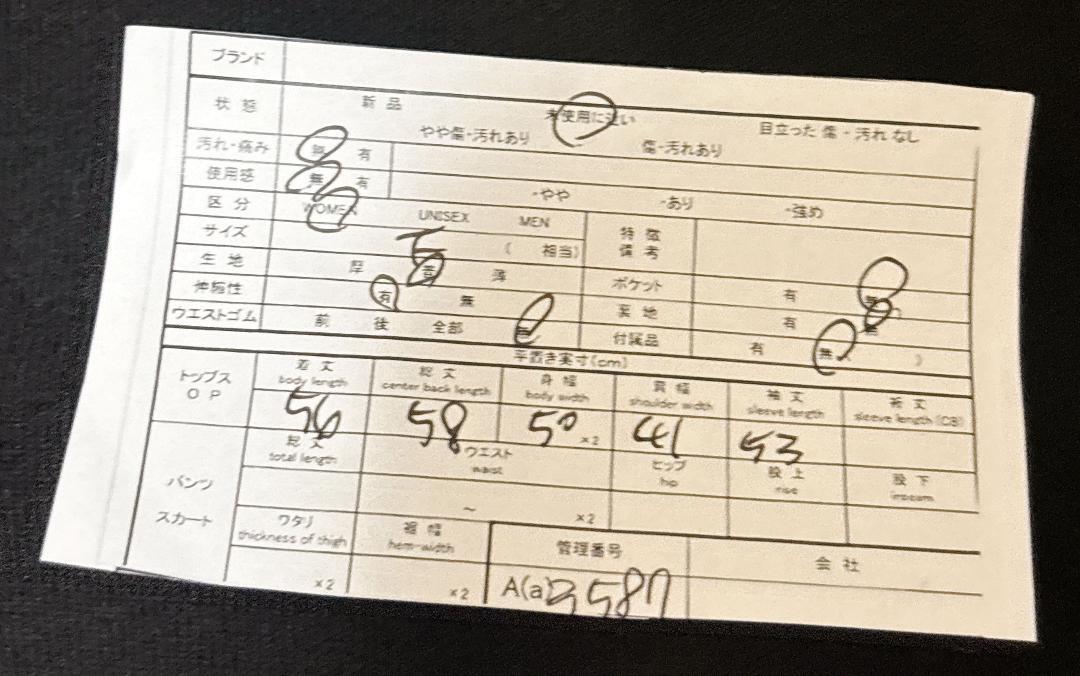 ブランド
状態 新品 未使用に近い 目立った傷・汚れなし
やや傷・汚れあり 傷・汚れあり
汚れ・痛み 無 有
使用感 無 有 ・やや ・あり ・強め
区分 WOMEN UNISEX MEN 特徴
備考
サイズ ( 相当)
生地 厚 普 薄 ポケット 有 無
伸縮性 有 無 裏地 有 無
ウエストゴム 前 後 全部 無 付属品 有 無 )
平置き実寸(cm)
トップス
OP
着丈 総丈 身幅 肩幅 袖丈 裄丈
body length center back length body width shoulder width sleeve length sleeve length (CB)
56 58 50 ×2 41 53
パンツ
スカート
総丈 ウエスト ヒップ 股上 股下
total length waist hip rise inseam
~ ×2
ワタリ 裾幅 管理番号 会社
thickness of thigh hem-width
×2 ×2 A(a)3587